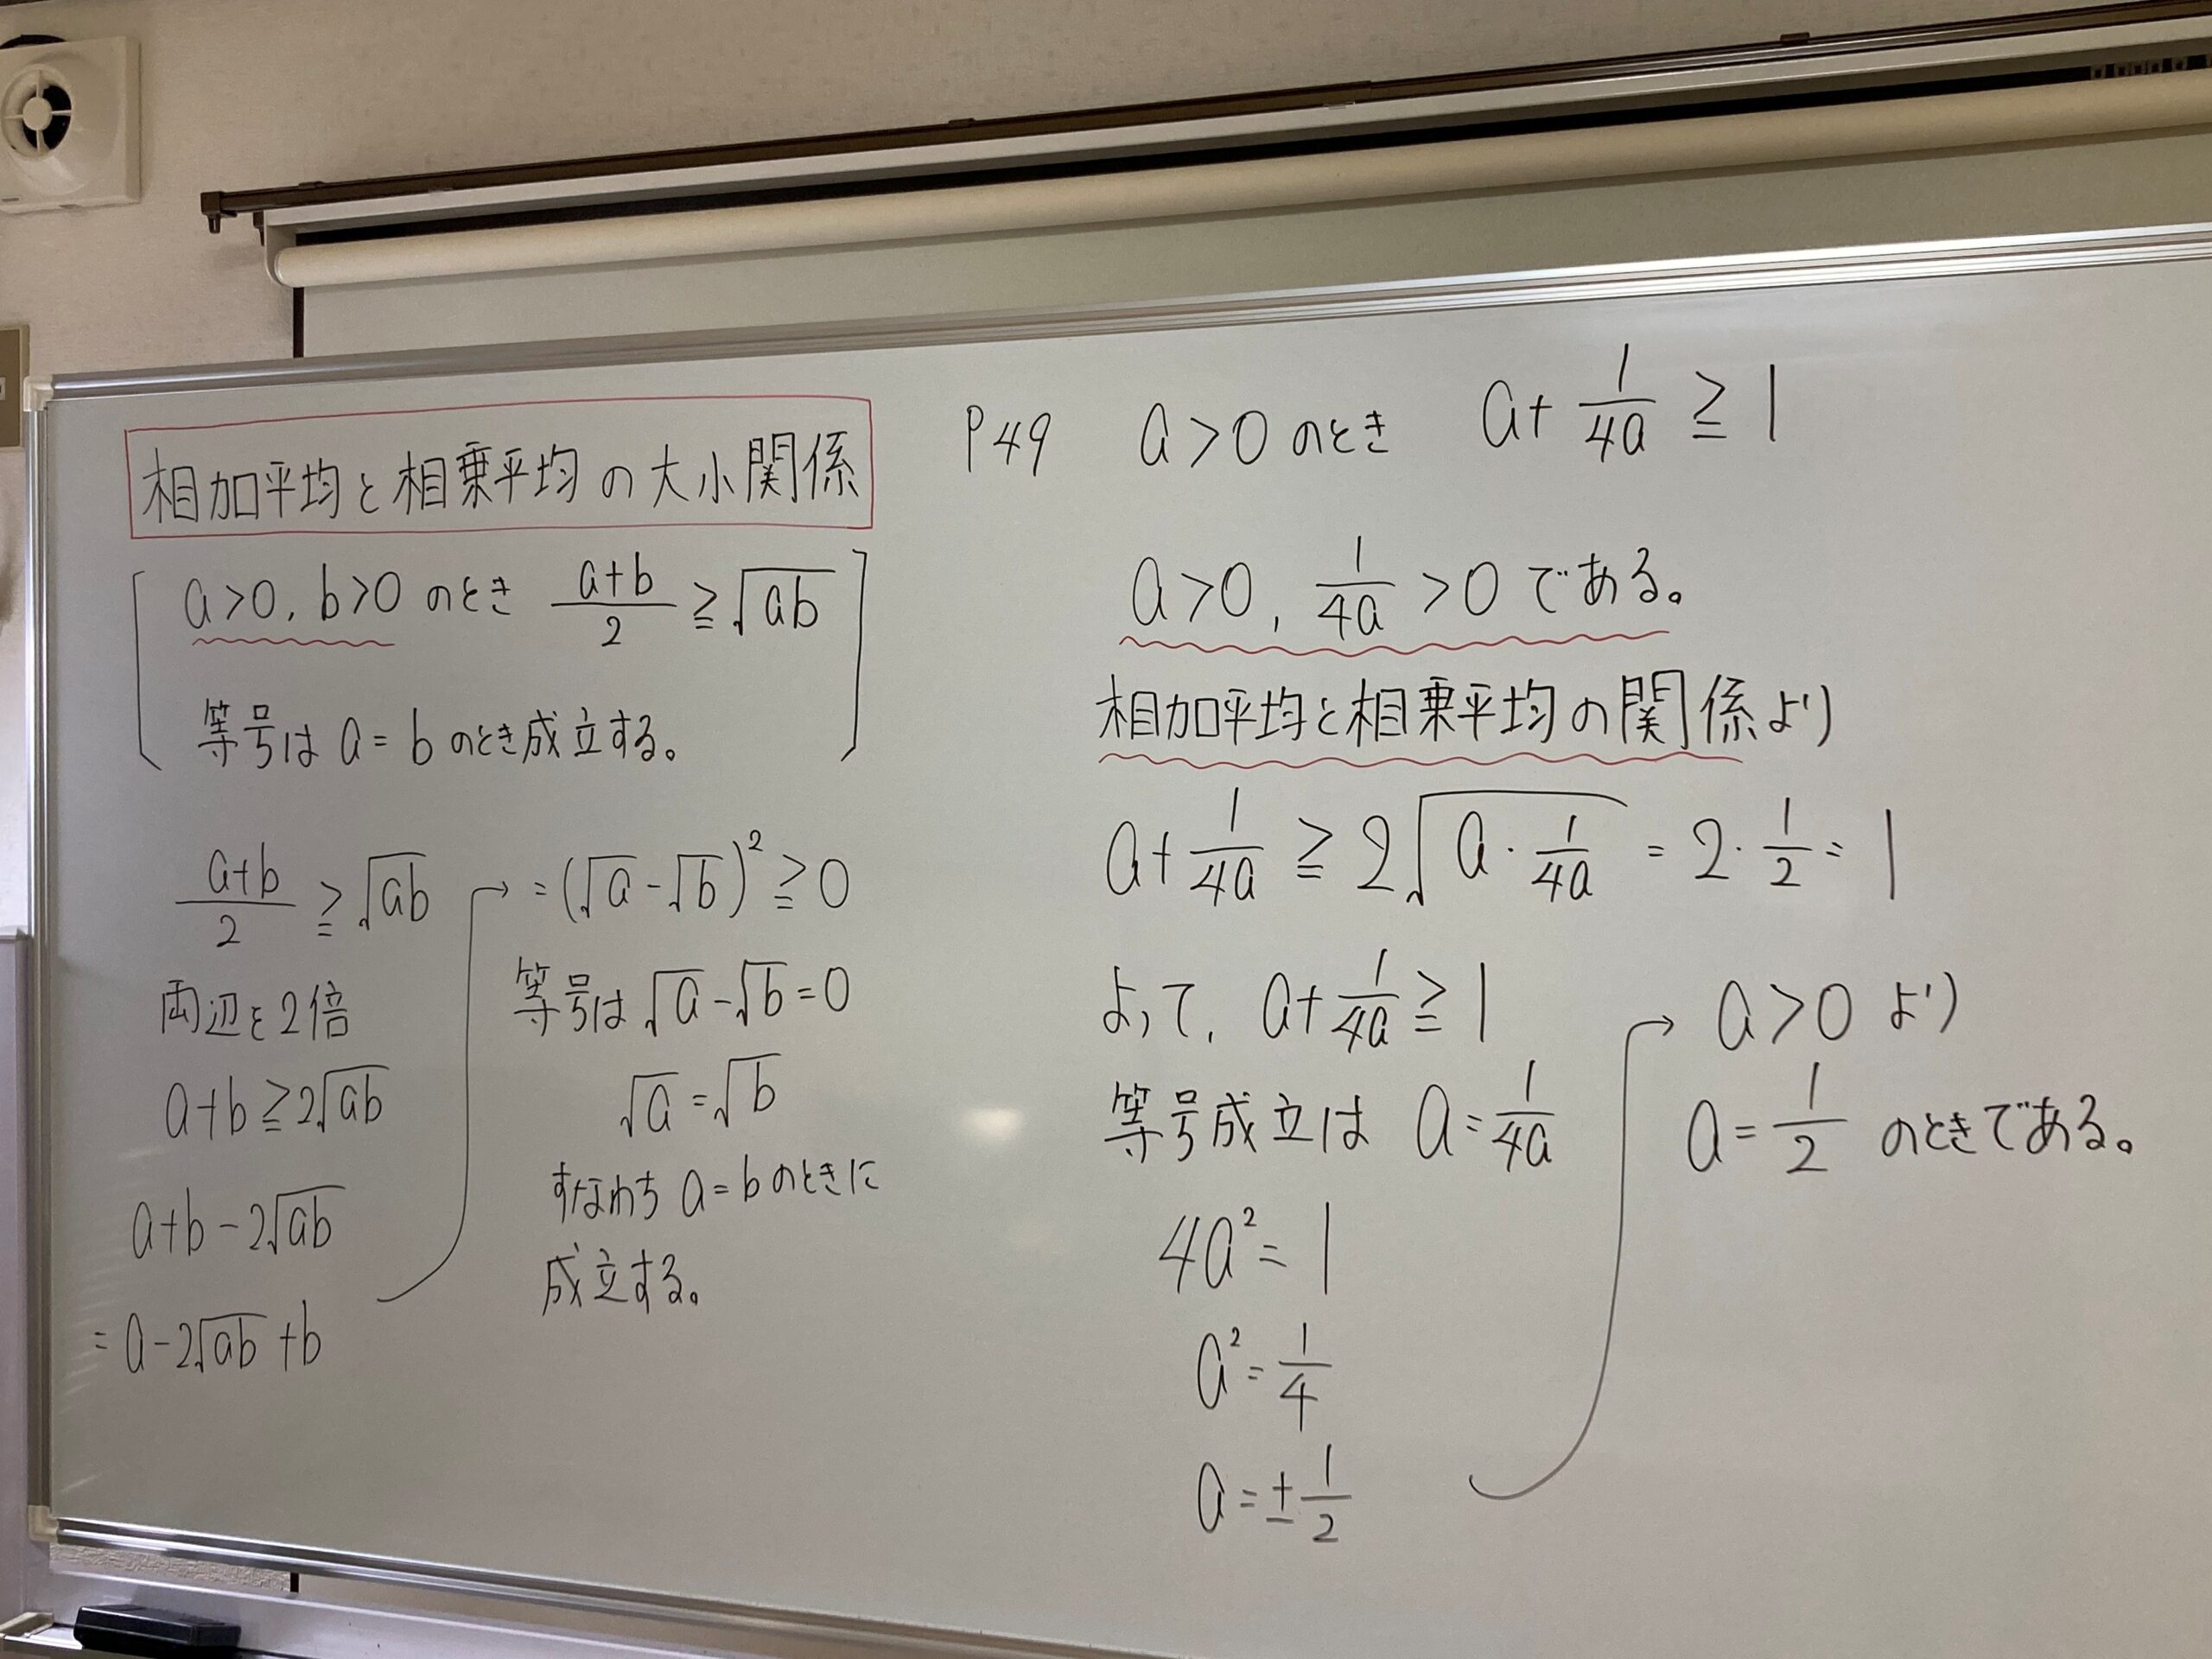 相加平均と相乗平均の大小関係
a>0, b>0 のとき (a+b)/2 ≧ √(ab)
等号は a = b のとき成立する。
(a+b)/2 ≧ √(ab)
両辺を2倍
a+b ≧ 2√(ab)
a+b-2√(ab)
= a-2√(ab)+b
→ = (√a-√b)² ≧ 0
等号は √a-√b = 0
√a = √b
すなわち a = b のときに
成立する。
P49 a>0 のとき a+1/(4a) ≧ 1
a>0, 1/(4a) >0 である。
相加平均と相乗平均の関係より
a+1/(4a) ≧ 2√(a・1/(4a)) = 2・1/2 = 1
よって, a+1/(4a) ≧ 1
等号成立は a = 1/(4a)
4a² = 1
a² = 1/4
a = ±1/2
→ a>0 より
a = 1/2 のときである。